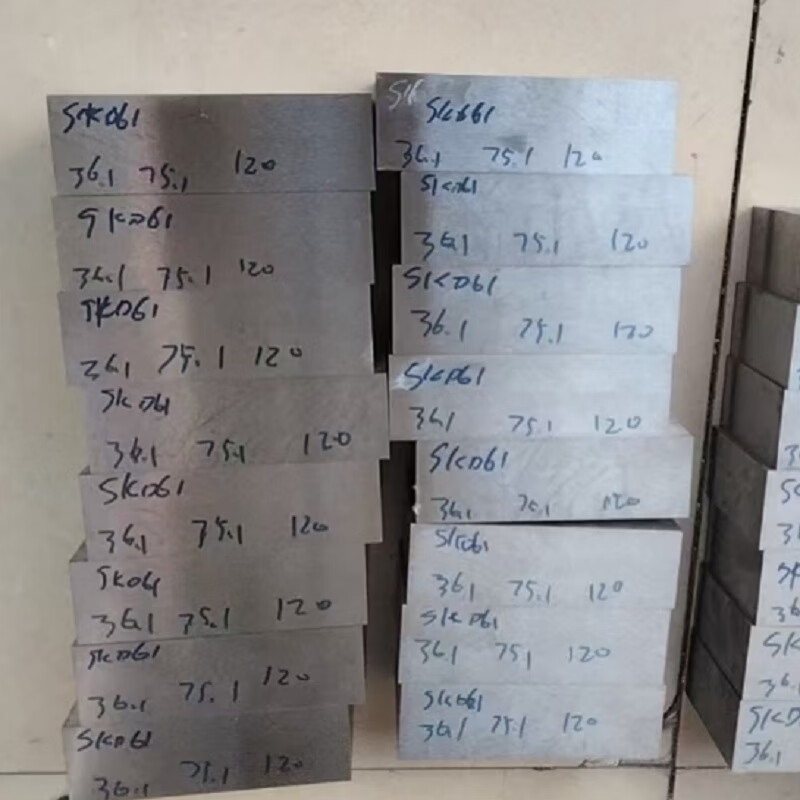 SKD61
36.1 75.1 120
SKD61
36.1 75.1 120
SKD61
36.1 75.1 120
SKD61
36.1 75.1 120
SKD61
36.1 75.1 120
SKD61
36.1 75.1 120
SKD61
36.1 75.1 120
SKD61
36.1 75.1 120
SK SKD61
36.1 75.1 120
SKD61
36.1 75.1 120
SKD61
36.1 75.1 120
SKD61
36.1 75.1 120
SKD61
36.1 75.1 120
SKD61
36.1 75.1 120
SKD61
36.1 75.1 120
SKD61
36.1 75.1 120
3
S
3
SK
36
SK
36.
SKD
36.1